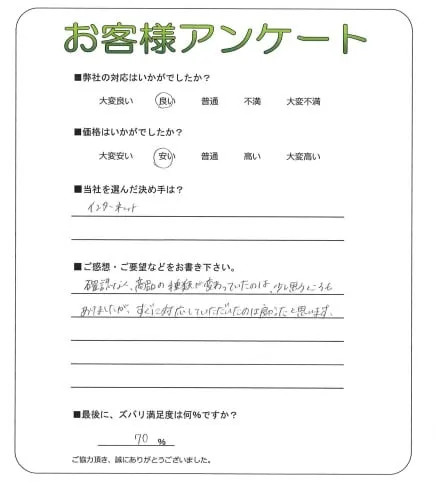 お客様アンケート
■弊社の対応はいかがでしたか？
大変良い 良い 普通 不満 大変不満
■価格はいかがでしたか？
大変安い 安い 普通 高い 大変高い
■当社を選んだ決め手は？
インターネット
■ご感想・ご要望などをお書き下さい。
確認なく、商品の種類が変わっていたのは、少し思うところも
ありましたが、すぐに対応していただいたのは良かったと思います。
■最後に、ズバリ満足度は何％ですか？
70 ％
ご協力頂き、誠にありがとうございました。